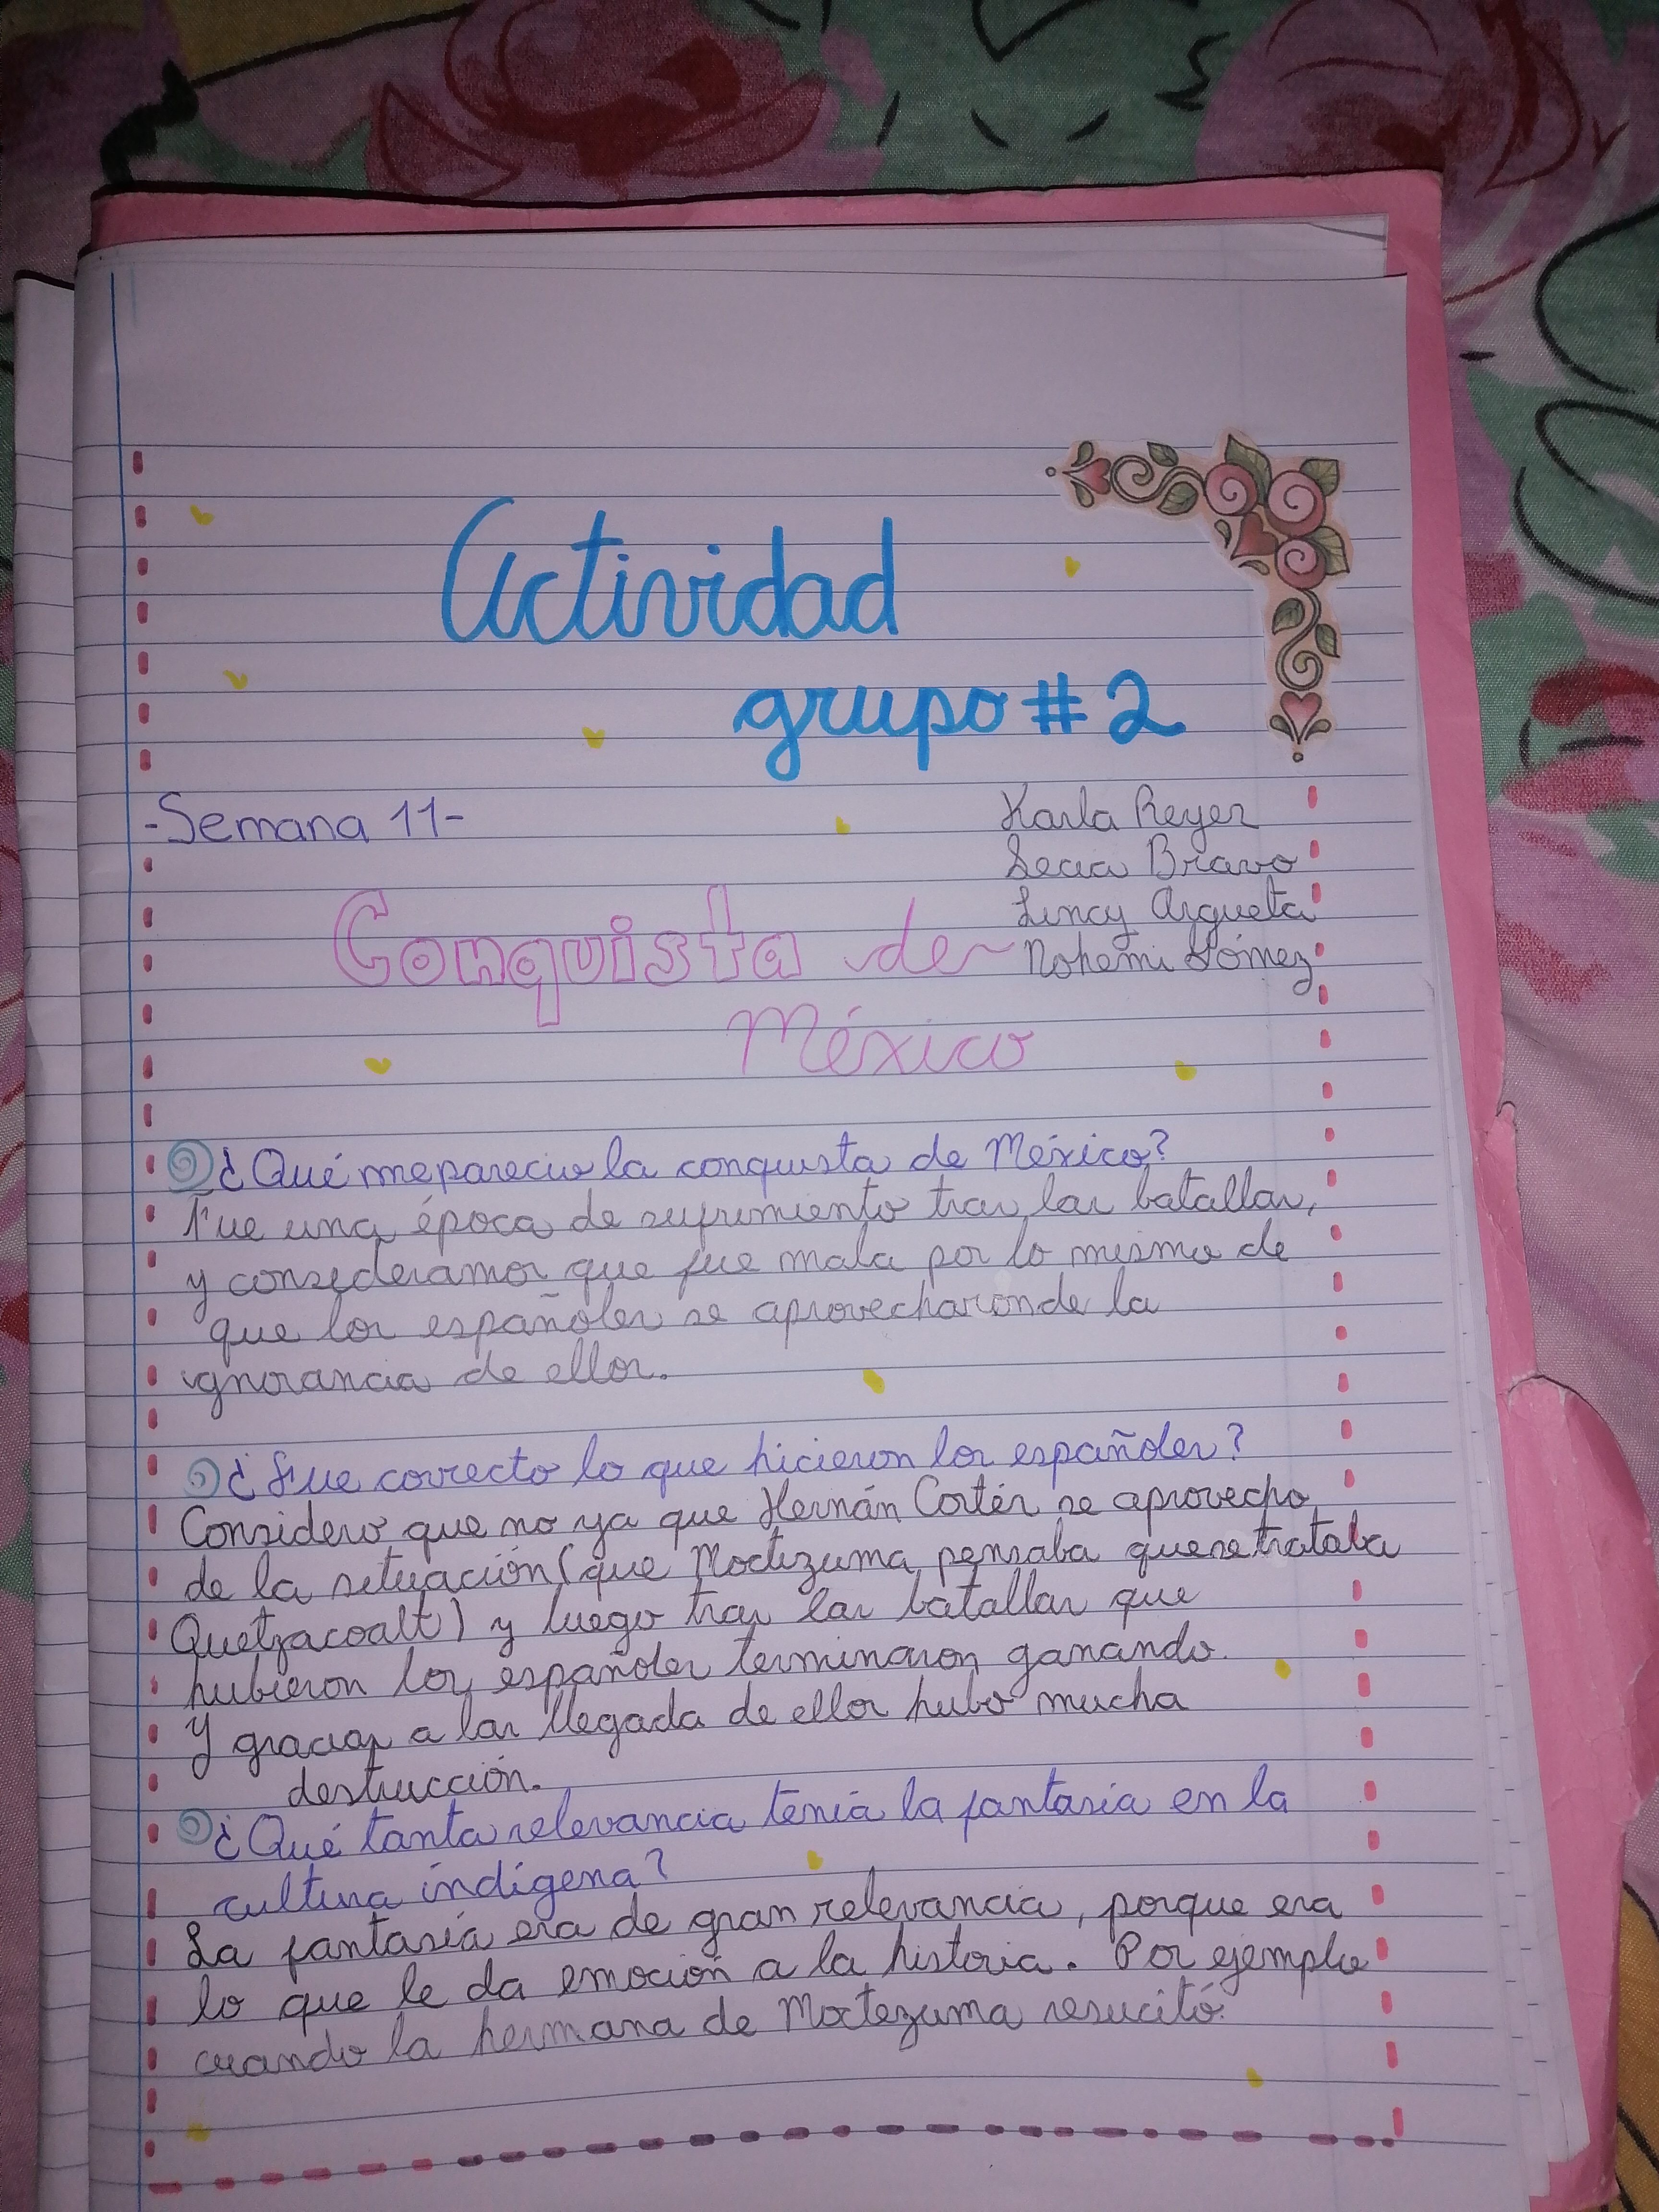 Actividad
grupo # 2
-Semana 11-
Karla Reyes
Secia Bravo
Lincy Argueta
Nohemi Gómez
Conquista de
México
¿Qué me parecio la conquista de México?
Fue una época de sufrimiento tras las batallas,
y consideramos que fue mala por lo mismo de
que los españoles se aprovecharon de la
ignorancia de ellos.
¿Fue correcto lo que hicieron los españoles?
Considero que no ya que Hernán Cortés se aprovecho
de la situación (que Moctezuma pensaba que se trataba
Quetzacoalt) y luego tras las batallas que
hubieron los españoles terminaron ganando.
Y gracias a las llegada de ellos hubo mucha
destrucción.
¿Qué tanta relevancia tenía la fantasía en la
cultura indígena?
La fantasía era de gran relevancia, porque era
lo que le da emoción a la historia. Por ejemplo
cuando la hermana de Moctezuma resucitó.